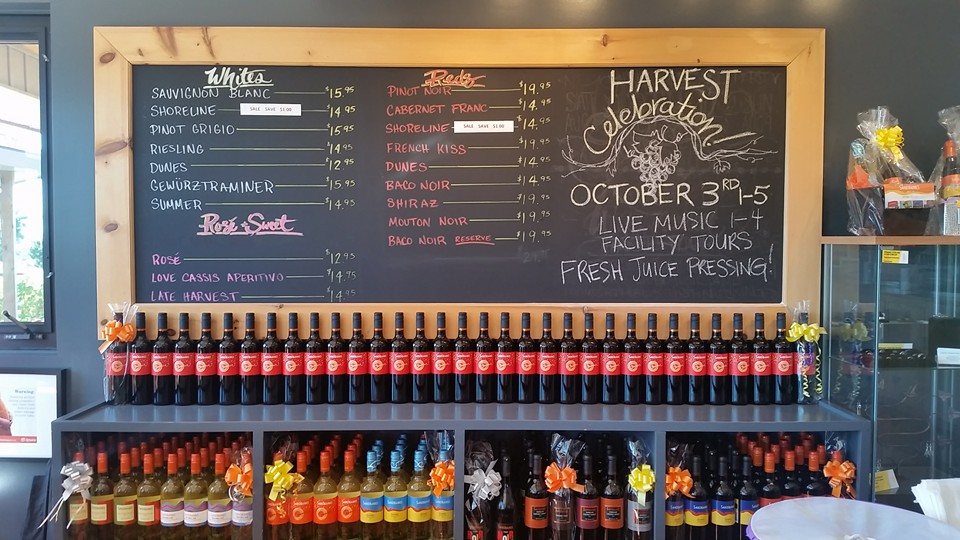 Whites
SAUVIGNON BLANC $15.95
SHORELINE SALE SAVE $1.00 $14.95
PINOT GRIGIO $15.95
RIESLING $14.95
DUNES $12.95
GEWÜRZTRAMINER $15.95
SUMMER $14.95
Rosé & Sweet
ROSÉ $12.95
LOVE CASSIS APERITIVO $14.75
LATE HARVEST $14.95
Reds
PINOT NOIR $19.95
CABERNET FRANC $14.95
SHORELINE SALE SAVE $1.00 $14.95
FRENCH KISS $19.95
DUNES $14.95
BACO NOIR $14.95
SHIRAZ $19.95
MOUTON NOIR $19.95
BACO NOIR RESERVE $19.95
HARVEST
Celebration!
OCTOBER 3RD 1-5
LIVE MUSIC 1-4
FACILITY TOURS
FRESH JUICE PRESSING!